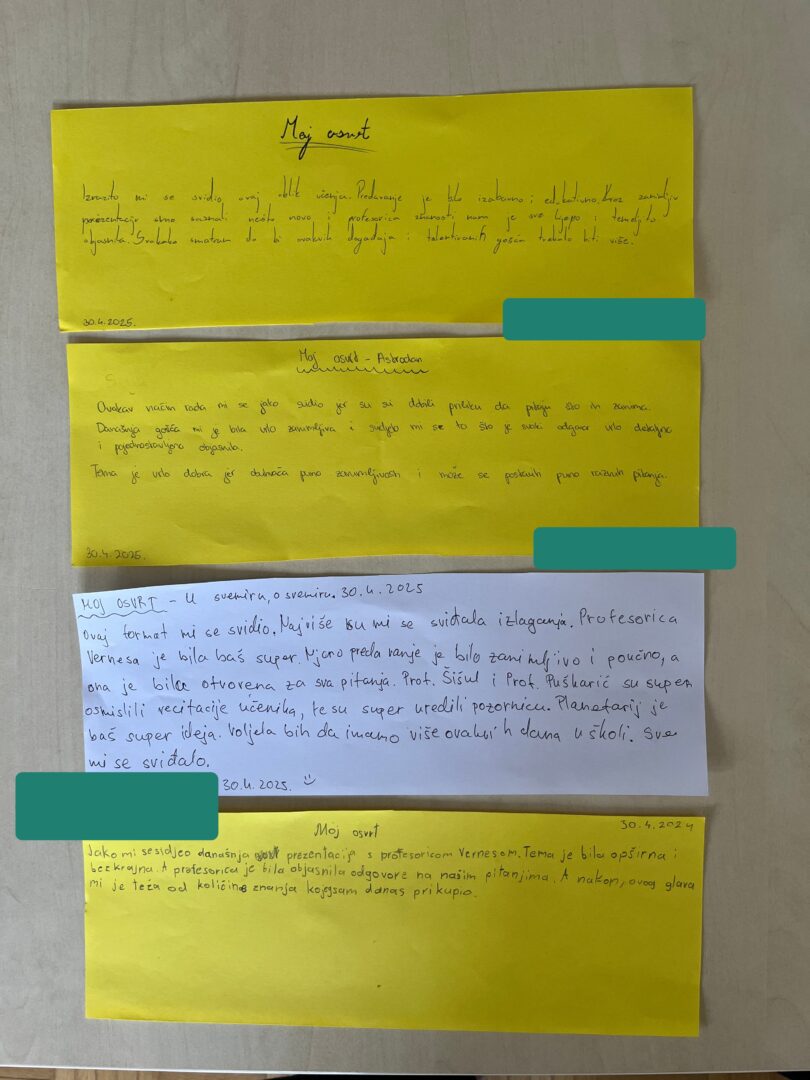 Moj osvrt
Izrazito mi se svidio ovaj oblik učenja. Predavanje je bilo izabavno i edukativno. Kroz zanimljiv
prezentaciju smo saznali nešto novo i profesorica znanosti nam je sve lijepo i temeljito
objasnila. Svakako smatram da bi ovakvih događaja i talentiranih gošća trebalo biti više.
30.4.2025.
Moj osvrt - Astrodan
Ovakav način rada mi se jako svidio jer su svi dobili priliku da pitaju što ih zanima.
Današnja gošća mi je bila vrlo zanimljiva i svidjelo mi se to što je svaki odgovor vrlo detaljno
i pojednostavljeno objasnila.
Tema je vrlo dobra jer puno zanimljivosti i može se postaviti puno raznih pitanja.
30.4.2025.
MOJ OSVRT - U svemiru, o svemiru. 30.4.2025
Ovaj format mi se svidio. Najviše su mi se sviđala izlaganja. Profesorica
Vernesa je bila baš super. Njeno predavanje je bilo zanimljivo i poučno, a
ona je bila otvorena za sva pitanja. Prof. Šišul i Prof. Puškarić su super
osmislili recitacije učenika, te su super uredili pozornicu. Planetarij je
baš super ideja. Voljela bih da imamo više ovakvih dana u školi. Sve
mi se sviđalo.
30.4.2025.
Moj osvrt
30.4.2024
Jako mi se sidjeo današnja prezentacija s profesoricom Vernesom. Tema je bila opširna i
bezkrajna. A profesorica je bila objasnila odgovore na našim pitanjima. A nakon, ovog glava
mi je teža od količine znanja kojeg sam danas prikupio.